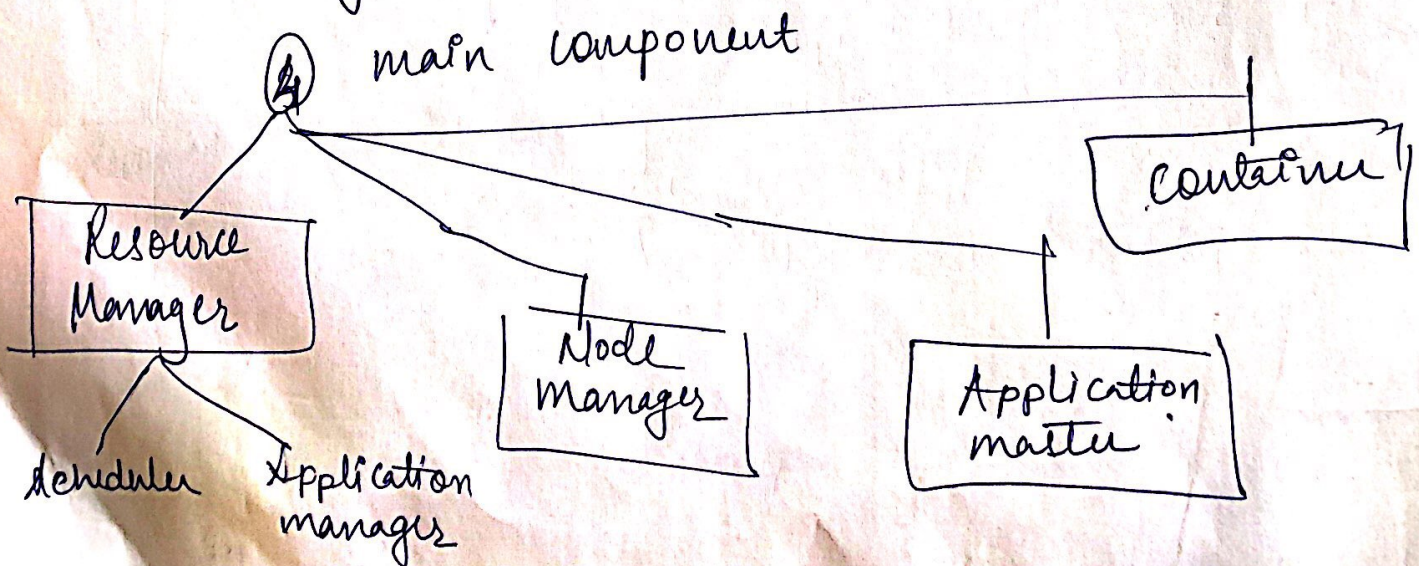 4 main component
Container
Resource
Manager
Node
Manager
Application
master
Scheduler
Application
manager